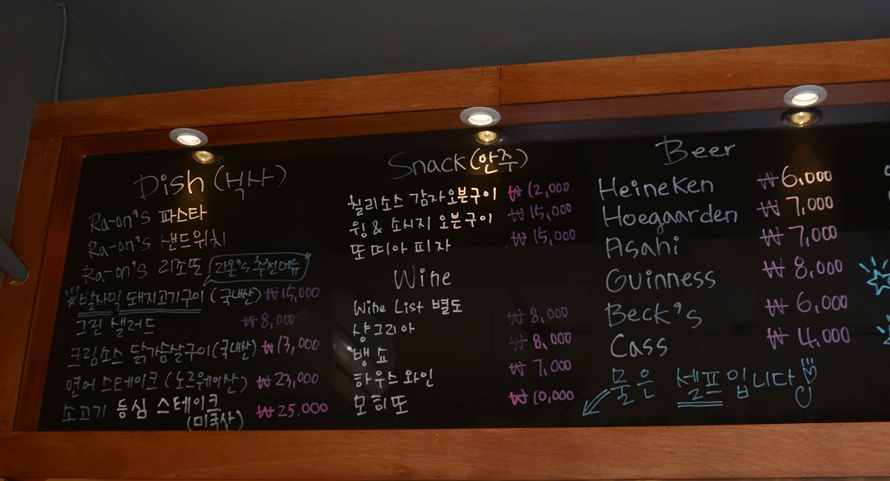 Dish (식사)
Ra-on's 파스타
Ra-on's 샌드위치
Ra-on's 리소또
라온's 추천메뉴
발사믹 돼지고기구이 (국내산) ₩15,000
그린 샐러드 ₩8,000
크림소스 닭가슴살구이(국내산) ₩13,000
연어 스테이크 (노르웨이산) ₩23,000
소고기 등심 스테이크 ₩25.000
(미국산)
Snack (안주)
칠리소스 감자오븐구이 ₩12,000
윙 & 소시지 오븐구이 ₩15,000
또띠아 피자 ₩15,000
Wine
Wine List 별도
샹그리아 ₩8,000
뱅쇼 ₩8,000
하우스 와인 ₩7,000
모히또 ₩10,000
Beer
Heineken ₩6,000
Hoegaarden ₩7,000
Asahi ₩7,000
Guinness ₩8,000
Beck's ₩6,000
Cass ₩4,000
물은 셀프입니다